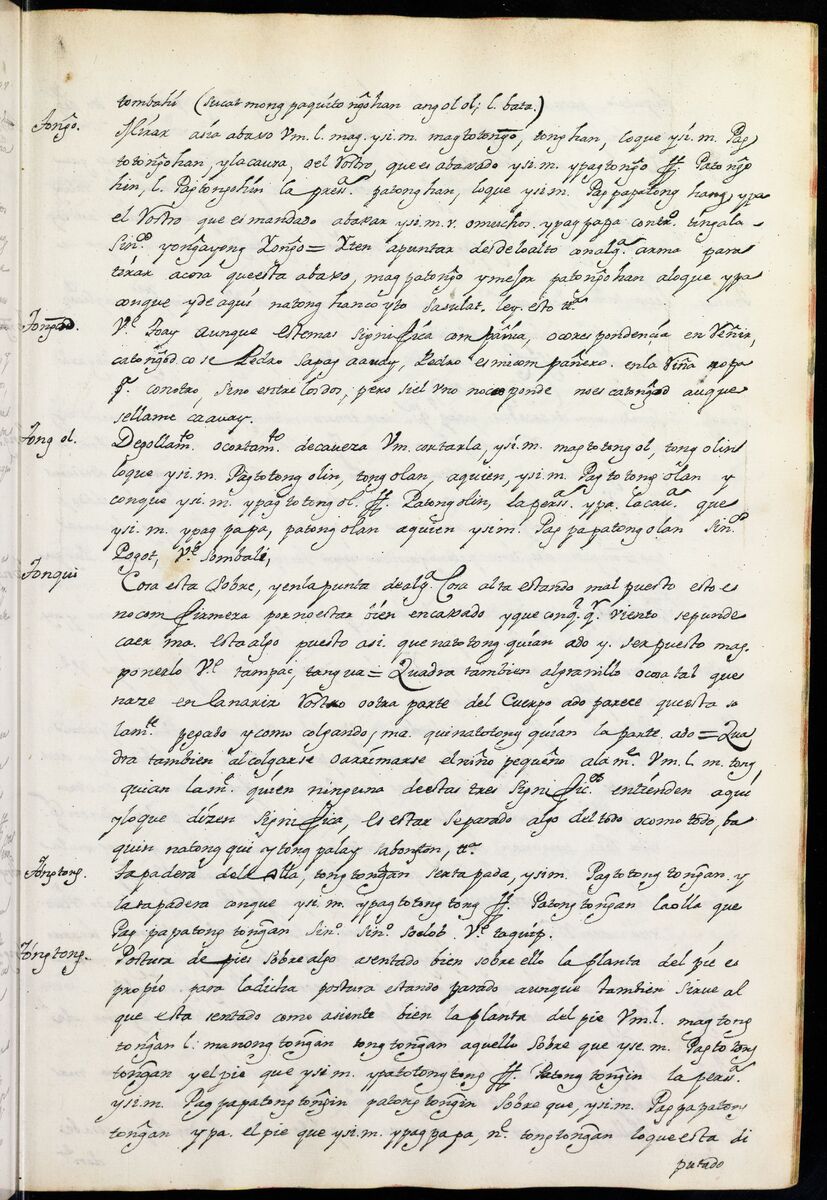 tombahi (sucat mong paquitong̃ohan ang olol; l. bata.)
Tong̃o. Mirar asia abaxo Vm. l. mag. ysi. m. magtotong̃o, tong̃han, loque ysi. m. Pag
totong̃ohan, y la caura, o el Rostro, que es abaxado ysi. m. ypagtong̃o ff. Patong̃o
hin, l. Pagtong̃ohin la perss.ª patong̃han, loque ysi. m. Pagpapatong̃hang ypa
el Rostro que es mandado abaxar ysi. m. v. omeichos. ypagpapa contr.º tingala
Sin.º yong̃ayong Yong̃o = Yten apuntar desde lo alto con alg.ª arma para
tirar acosa que esta abaxo, mag patong̃o y mejor patong̃ohan aloque ypa
conque y de aqui natong̃hanco yto sasulat. ley esto &.ª
Tong̃od. V.e Toay aunque este mas significa compañia, ocorespondencia en Venir,
catong̃od co se Pedro sapag aavay, Pedro es mi compañero. en la Viña no pa
q.e con otro, sino entre los dos, pero si el vno no corponde no es catong̃od auque
se llame caavay.
Tong ol. Degollam.to ocortam.to decaveza Vm. cortarla, ysi. m. mag totong ol, tong olin
loque ysi. m. Pagtotong olin, tong olan, aquien, ysi. m. Pag totong olan y
conque ysi. m. ypagtotong ol. ff. Patong olin, la perss.ª ypa. la cau.ª que
ysi. m. ypag papa, patong olan aquien ysi m. Pag papatong olan Sin.º
Pogot, V.e Sombali,
Tonqui Cosa esta sobre, y en la punta de alg.ª Cosa alta estando mal puesto esto es
no com firmeza por no estar bien encaxado y que conq.ª q.r viento se punde
caer ma. esta algo puesto asi. que natotong quian ado y. ser puesto mag.
ponerlo V.e tampac, tangua = Quadra tambien algranillo ocosa tal que
naze en la nariz Rostro ootra parte del Cuerpo ado parece que esta so
lam.te pegado y como colgando, ma. qui natotong quian la parte ado = Qua
dra tambien al colgarse oarrimarse el niño pequeño ala m.e Vm. l. m. tong
quian la m.e quien ninguna de estas tres signific.es entienden aqui
y loque dizen significa, es estar separado algo del todo ocomo todo, ba
quin natong qui ytong palay sa bongton, &.ª
Tong̃tong. Tapadera de olla, tong tong̃an ser tapada, ysi m. Pagtotong tong̃an. y
la tapadera conque ysi. m. ypagtotong tong ff. Patong tong̃an la olla que
Pag papatong tong̃an Sin.º Sin.º soclob. V.e taquip.
Tóng tong. Postura de pies sobre algo asentado bien sobre ello la planta del pie es
propio para la dicha postura estando parado aunque tambien sirue al
que esta sentado como asiente bien la planta del pie Vm. l. mag tong
tong̃an l: manong tong̃an tong tong̃an aquello sobre que yse. m. Pag to tong
tong̃an y el pie que ysi. m. ypatotong tong ff. Patong tong̃in la perss.ª
ysi. m. Pag papatong tong̃in patong tong̃in sobre que, ysi. m. Pag papatong
tong̃an y pa. el pie que ysi. m. ypag papa, n.e tong tong̃an loque esta di
putado